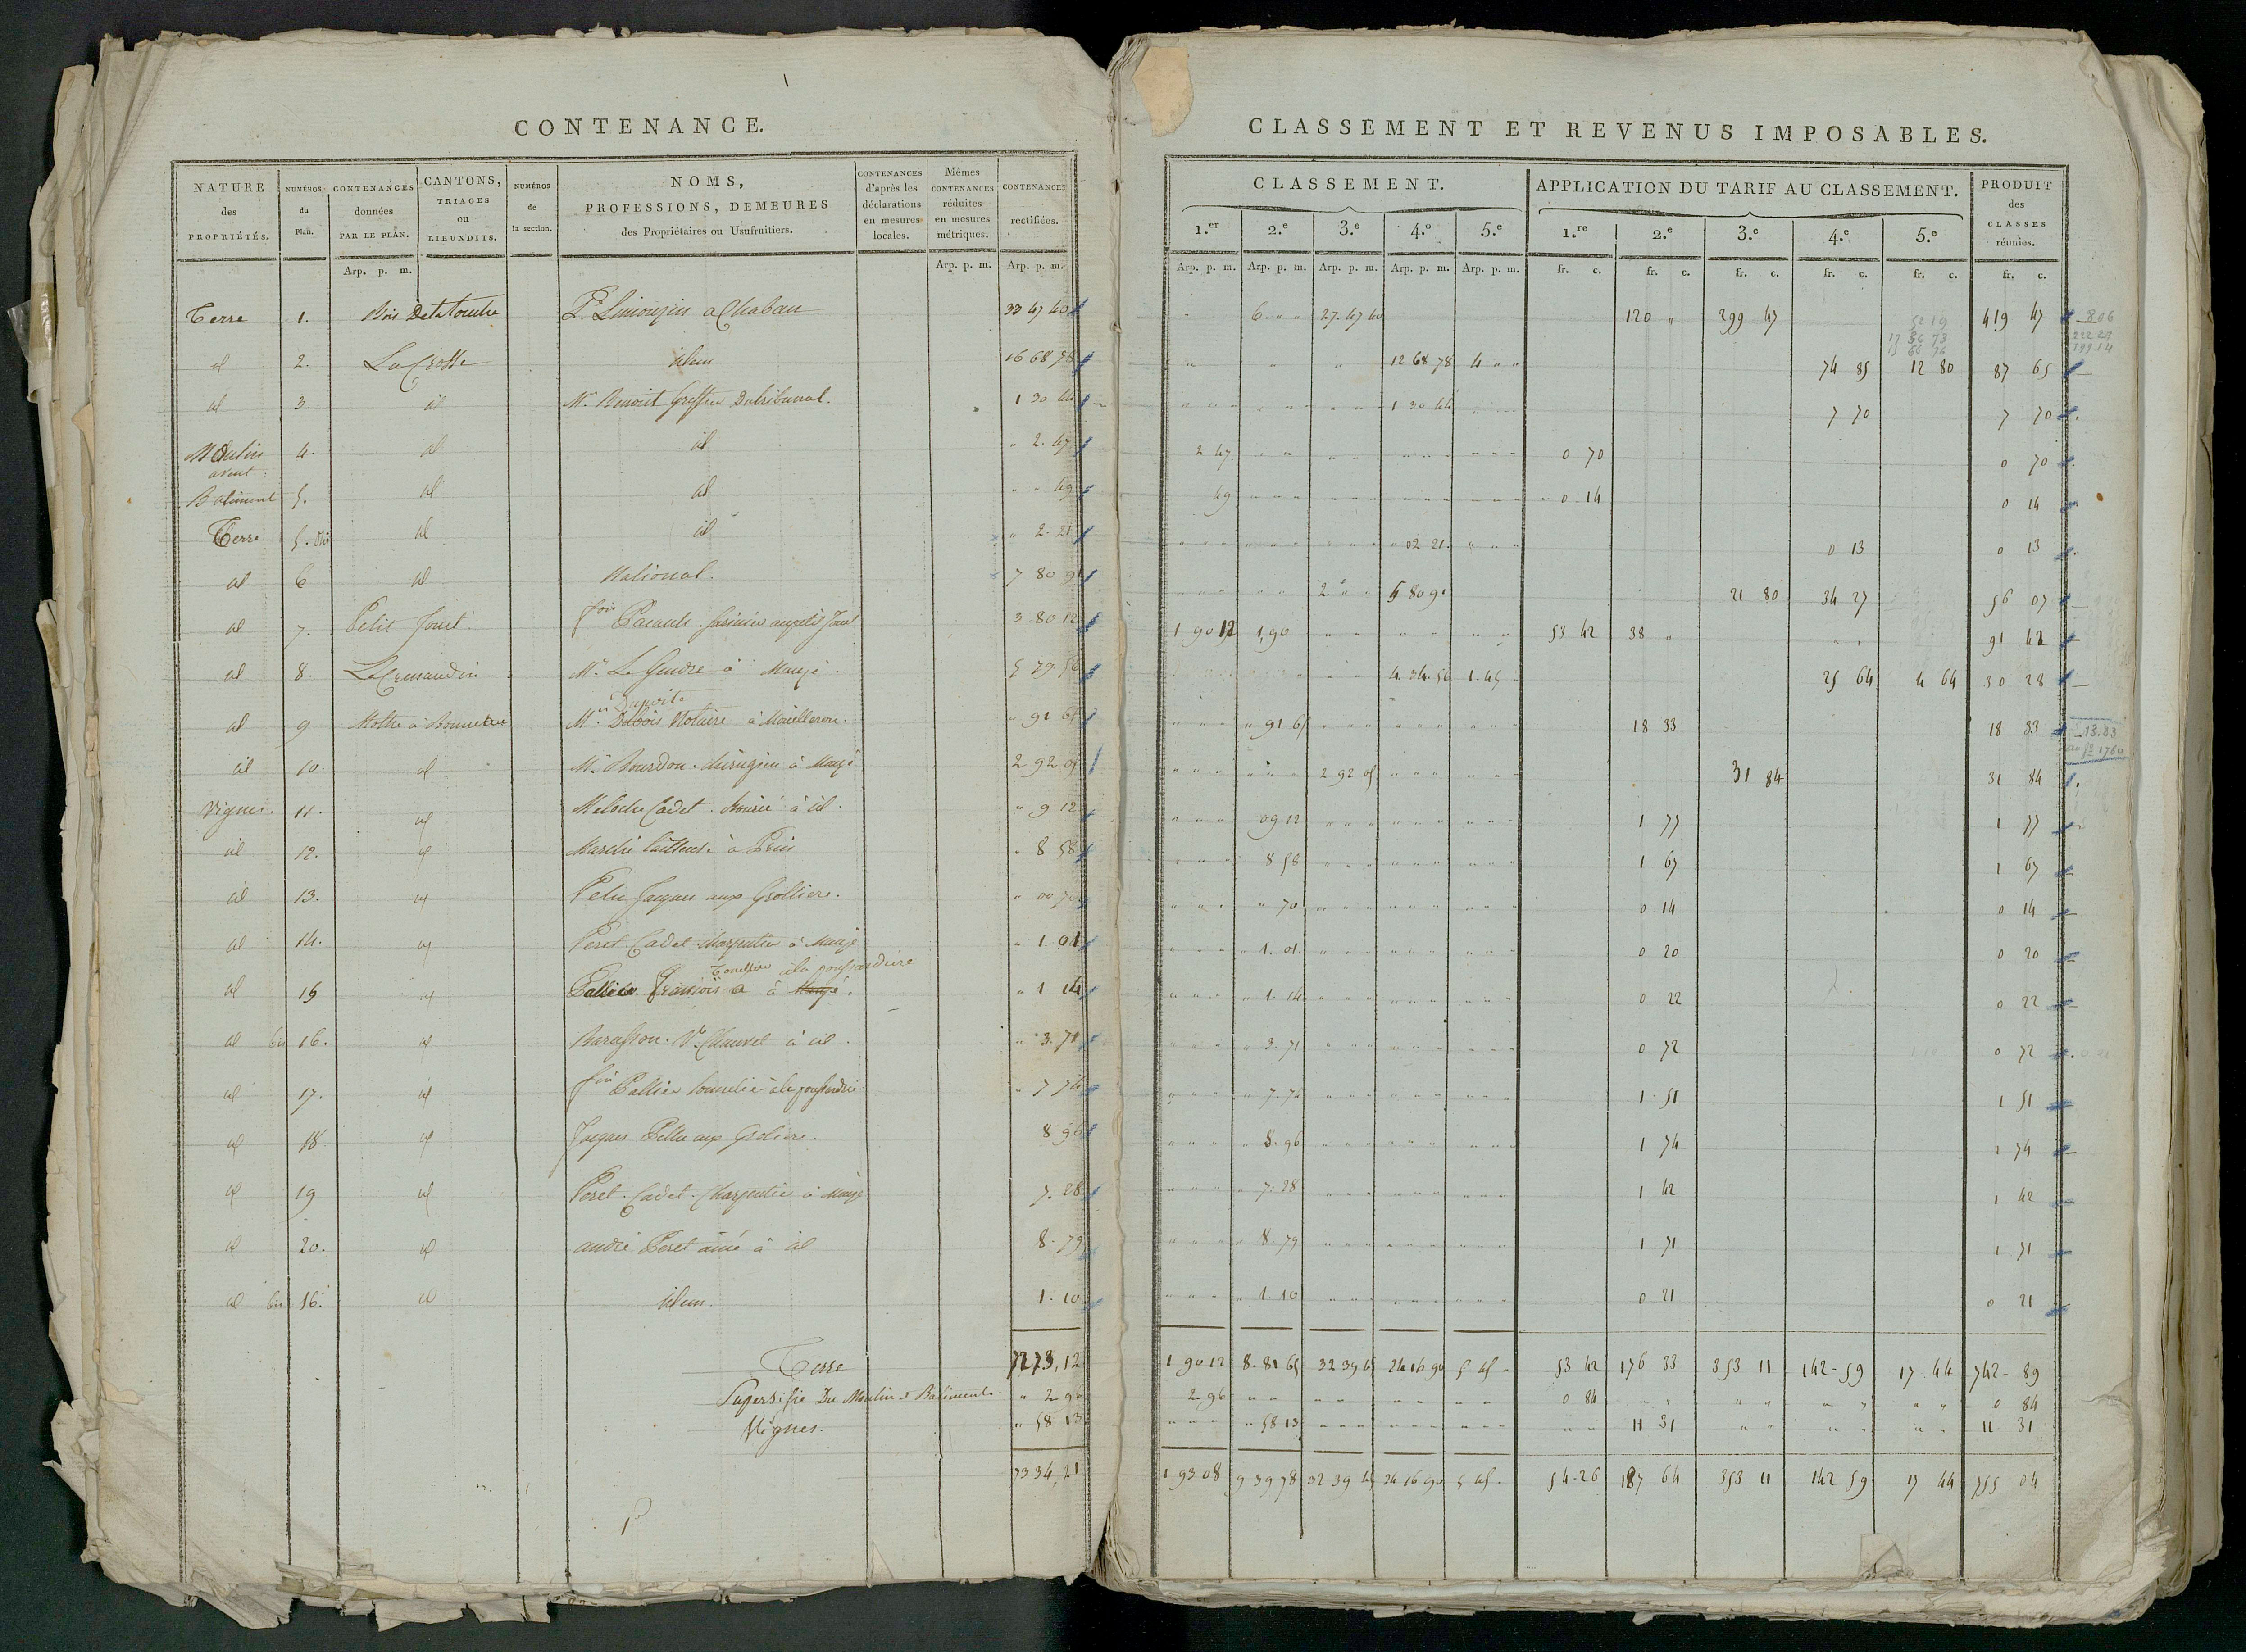 CONTENANCE.
NATURE des PROPRIÉTÉS. | NUMÉROS du Plan. | CONTENANCES données PAR LE PLAN. | CANTONS, TRIAGES ou LIEUXDITS. | NUMÉROS de la section. | NOMS, PROFESSIONS, DEMEURES des Propriétaires ou Usufruitiers. | CONTENANCES d'après les déclarations en mesures locales. | Mêmes CONTENANCES réduites en mesures métriques. | CONTENANCES rectifiées.
Arp. p. m. | Arp. p. m. | Arp. p. m.
Terre 1. Bois De la P. Limouzin a Chaban 33 47 40
id 2. La Crosse idem 16 68 78
id 3. id Mr. Benoist Greffier Du tribunal. 1 30 44
Moulin avent 4. id id " 2. 47
Batiment 5. id id " " 49
Terre 5. bis id id " 2. 21
id 6 id National. 7 80 91
id 7. Petit Jouet fois au petit Jouet 3 80 12
id 8. Mr. Le Gendre à Mauzé. 5 79. 56
id 9 Motte à Mr. Dubois Notaire à 91 65
id 10. id Mr. Bourdon. chirugien à Mauzé 2 92 05
Vignes. 11. id Meloche Cadet. à id. " 9 12
id 12. id à Prin " 8 58
id 13. id Pelu Jacques aux Grollieres. " 00 70
id 14. id Peret Cadet Charpentier à Mauzé " 1. 01
id 15 id Pallier François à Mauzé. " 1 14
id bis 16. id Vve. Chauvet à id. " 3. 71
id 17. id fois Pallier " 7 74
id 18 id Jacques Pellu aux Grolieres. 8 96
id 19 id Peret. Cadet. Charpentier à Mauzé 7. 28
id 20. id andré Peret ainé à id 8. 79
id bis 16. id idem. 1. 10
Terre 72 73, 12
Du Moulin & Batiment. " 2 96
Vignes. " 58 13
73 34, 21
CLASSEMENT ET REVENUS IMPOSABLES.
CLASSEMENT. | APPLICATION DU TARIF AU CLASSEMENT. | PRODUIT des CLASSES réunies.
1.er | 2.e | 3.e | 4.e | 5.e | 1.re | 2.e | 3.e | 4.e | 5.e
Arp. p. m. | Arp. p. m. | Arp. p. m. | Arp. p. m. | Arp. p. m. | fr. c. | fr. c. | fr. c. | fr. c. | fr. c. | fr. c.
" 6. " " 27. 47 40 120 " 299 47 419 47
" " " 12 68 78 4 " " 74 85 12 80 87 65
1 30 44 7 70 7 70
2 47 0 70 0 70
49 0 14 0 14
02 21 0 13 0 13
2 " " 5 80 91 21 80 34 27 56 07
1 90 12 1,90 53 42 38 " 91 42
4. 34. 56 1. 45 25 64 4 64 30 28
" 91 65 18 33 18 33
2 92 05 31 84 31 84
09 12 1 77 1 77
8 58 1 67 1 67
" 70 0 14 0 14
1. 01 0 20 0 20
1. 14 0 22 0 22
3. 71 0 72 0 72
7. 74 1 51 1 51
8. 96 1 74 1 74
7. 28 1 42 1 42
8. 79 1 71 1 71
1. 10 0 21 0 21
1 90 12 8. 81 65 32 39 45 24 16 90 5 45 - 53 42 176 33 353 11 142-59 17 44 742-89
2-96 0 84 0 84
" 58 13 11 31 11 31
1 93 08 9 39 78 32 39 45 24 16 90 5 45 - 54-26 187 64 353 11 142 59 17 44 755 04